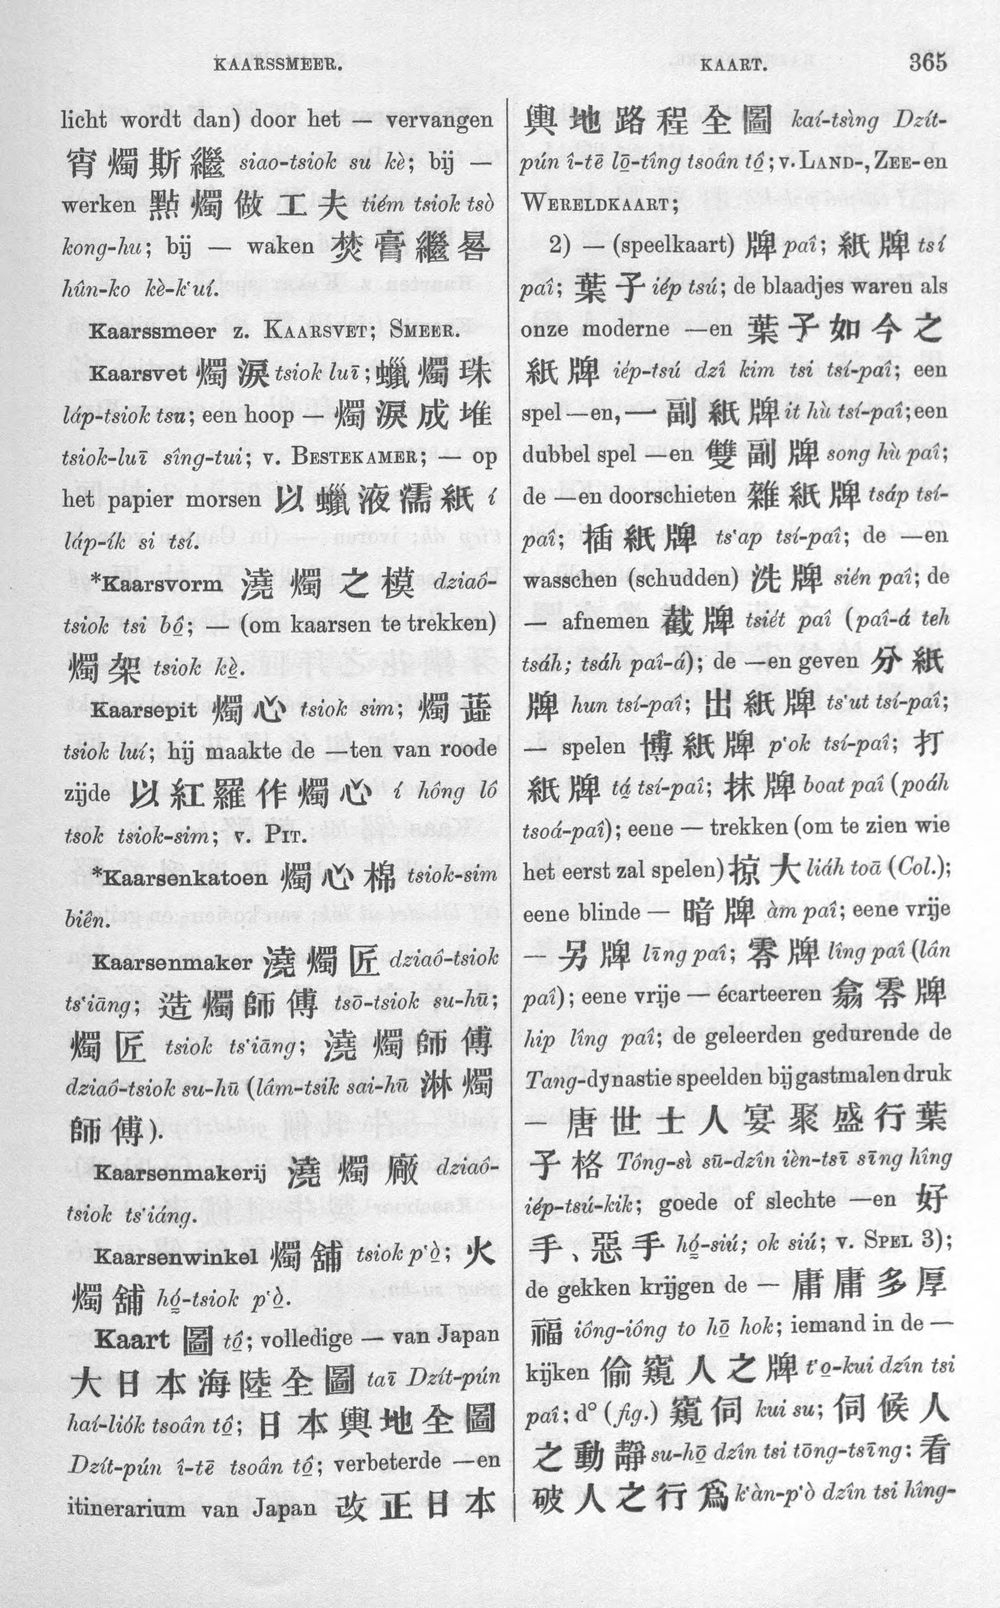 KAARSSMEER.
KAART.
365
licht wordt dan) door het — vervangen
宵燭斯繼 siao-tsiok su kè; bij —
werken 點燭做工夫 tiém tsiok tsò
kong-hu; bij — waken 焚膏繼晷
hûn-ko kè-k‘uí.
Kaarssmeer z. KAARSVET; SMEER.
Kaarsvet 燭淚 tsiok luī; 蠟燭珠
láp-tsiok tsu; een hoop — 燭淚成堆
tsiok-luī sîng-tui; v. BESTEKAMER; — op
het papier morsen 以蠟液濡紙 í
láp-ík si tsí.
*Kaarsvorm 澆燭之模 dziaô-
tsiok tsi bô̤; — (om kaarsen te trekken)
燭架 tsiok kè̤.
Kaarsepit 燭心 tsiok sim; 燭蕋
tsiok luí; hij maakte de —ten van roode
zijde 以紅羅作燭心 í hông lô
tsok tsiok-sim; v. PIT.
*Kaarsenkatoen 燭心棉 tsiok-sim
biên.
Kaarsenmaker 澆燭匠 dziaô-tsiok
ts‘iāng; 造燭師傅 tsō-tsiok su-hū;
燭匠 tsiok ts‘iāng; 澆燭師傅
dziaô-tsiok su-hū (lám-tsik sai-hū 淋燭
師傅).
Kaarsenmakerij 澆燭廠 dziaô-
tsiok ts‘iáng.
Kaarsenwinkel 燭舖 tsiok p‘ò̤; 火
燭舖 hó̤-tsiok p‘ò̤.
Kaart 圖 tô̤; volledige — van Japan
大日本海陸全圖 taī Dzít-pún
haí-liók tsoân tô̤; 日本輿地全圖
Dzít-pún î-tē tsoân tô̤; verbeterde —en
itinerarium van Japan 改正日本
輿地路程全圖 kaí-tsìng Dzít-
pún î-tē lō̤-tîng tsoân tô̤; v. LAND-, ZEE- en
WERELDKAART;
2) — (speelkaart) 牌 paî; 紙牌 tsí
paî; 葉子 iép tsú; de blaadjes waren als
onze moderne —en 葉子如今之
紙牌 iép-tsú dzî kim tsi tsí-paî; een
spel —en, 一副紙牌 it hù tsí-paî; een
dubbel spel —en 雙副牌 song hù paî;
de —en doorschieten 雜紙牌 tsáp tsí-
paî; 插紙牌 ts‘ap tsí-paî; de —en
wasschen (schudden) 洗牌 sién paî; de
— afnemen 截牌 tsiét paî (paî-á teh
tsáh; tsáh paî-á); de —en geven 分紙
牌 hun tsí-paî; 出紙牌 ts‘ut tsí-paî;
— spelen 博紙牌 p‘ok tsí-paî; 打
紙牌 tá̤ tsí-paî; 抹牌 boat paî (poáh
tsoá-paî); eene — trekken (om te zien wie
het eerst zal spelen) 掠大 liáh toā (Col.);
eene blinde — 暗牌 àm paî; eene vrije
— 另牌 līng paî; 零牌 lîng paî (lân
paî); eene vrije — écarteeren 翕零牌
hip lîng paî; de geleerden gedurende de
Tang-dynastie speelden bij gastmalen druk
— 唐世士人宴聚盛行葉
子格 Tông-sì sū-dzîn ièn-tsī sīng hîng
iép-tsú-kik; goede of slechte —en 好
手、惡手 hó̤-siú; ok siú; v. SPEL 3);
de gekken krijgen de — 庸庸多厚
福 iông-iông to hō̤ hok; iemand in de —
kijken 偷窺人之牌 t‘o̤-kui dzîn tsi
paî; d° (fig.) 窺伺 kui su; 伺候人
之動靜 su-hō̤ dzîn tsi tōng-tsīng: 看
破人之行爲 k‘àn-p‘ò dzîn tsi hîng-